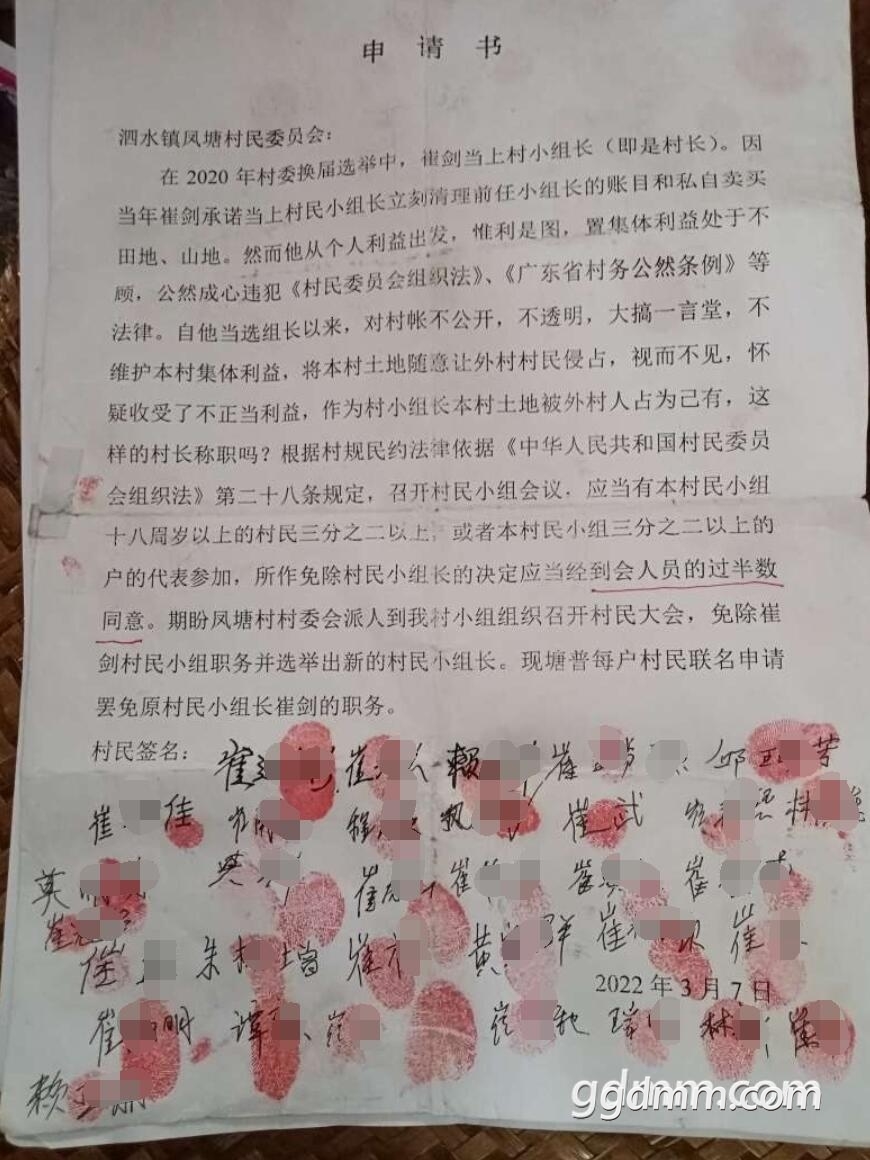 申请书
泗水镇凤塘村民委员会：
在2020年村委换届选举中，崔剑当上村小组长（即是村长）。因
当年崔剑承诺当上村民小组长立刻清理前任小组长的账目和私自卖买
田地、山地。然而他从个人利益出发，惟利是图，置集体利益处于不
顾，公然成心违犯《村民委员会组织法》、《广东省村务公然条例》等
法律。自他当选组长以来，对村帐不公开，不透明，大搞一言堂，不
维护本村集体利益，将本村土地随意让外村村民侵占，视而不见，怀
疑收受了不正当利益，作为村小组长本村土地被外村人占为己有，这
样的村长称职吗？根据村规民约法律依据《中华人民共和国村民委员
会组织法》第二十八条规定，召开村民小组会议，应当有本村民小组
十八周岁以上的村民三分之二以上，或者本村民小组三分之二以上的
户的代表参加，所作免除村民小组长的决定应当经到会人员的过半数
同意。期盼凤塘村村委会派人到我村小组组织召开村民大会，免除崔
剑村民小组职务并选举出新的村民小组长。现塘普每户村民联名申请
罢免原村民小组长崔剑的职务。
村民签名：崔 崔 赖 崔 邱 芳
崔 佳 程 崔 武 林
英 崔 崔 崔 崔
崔
崔 朱 崔 黄 群 崔 崔
2022年3月7日
崔 明 谭 林
赖
gdmm.com